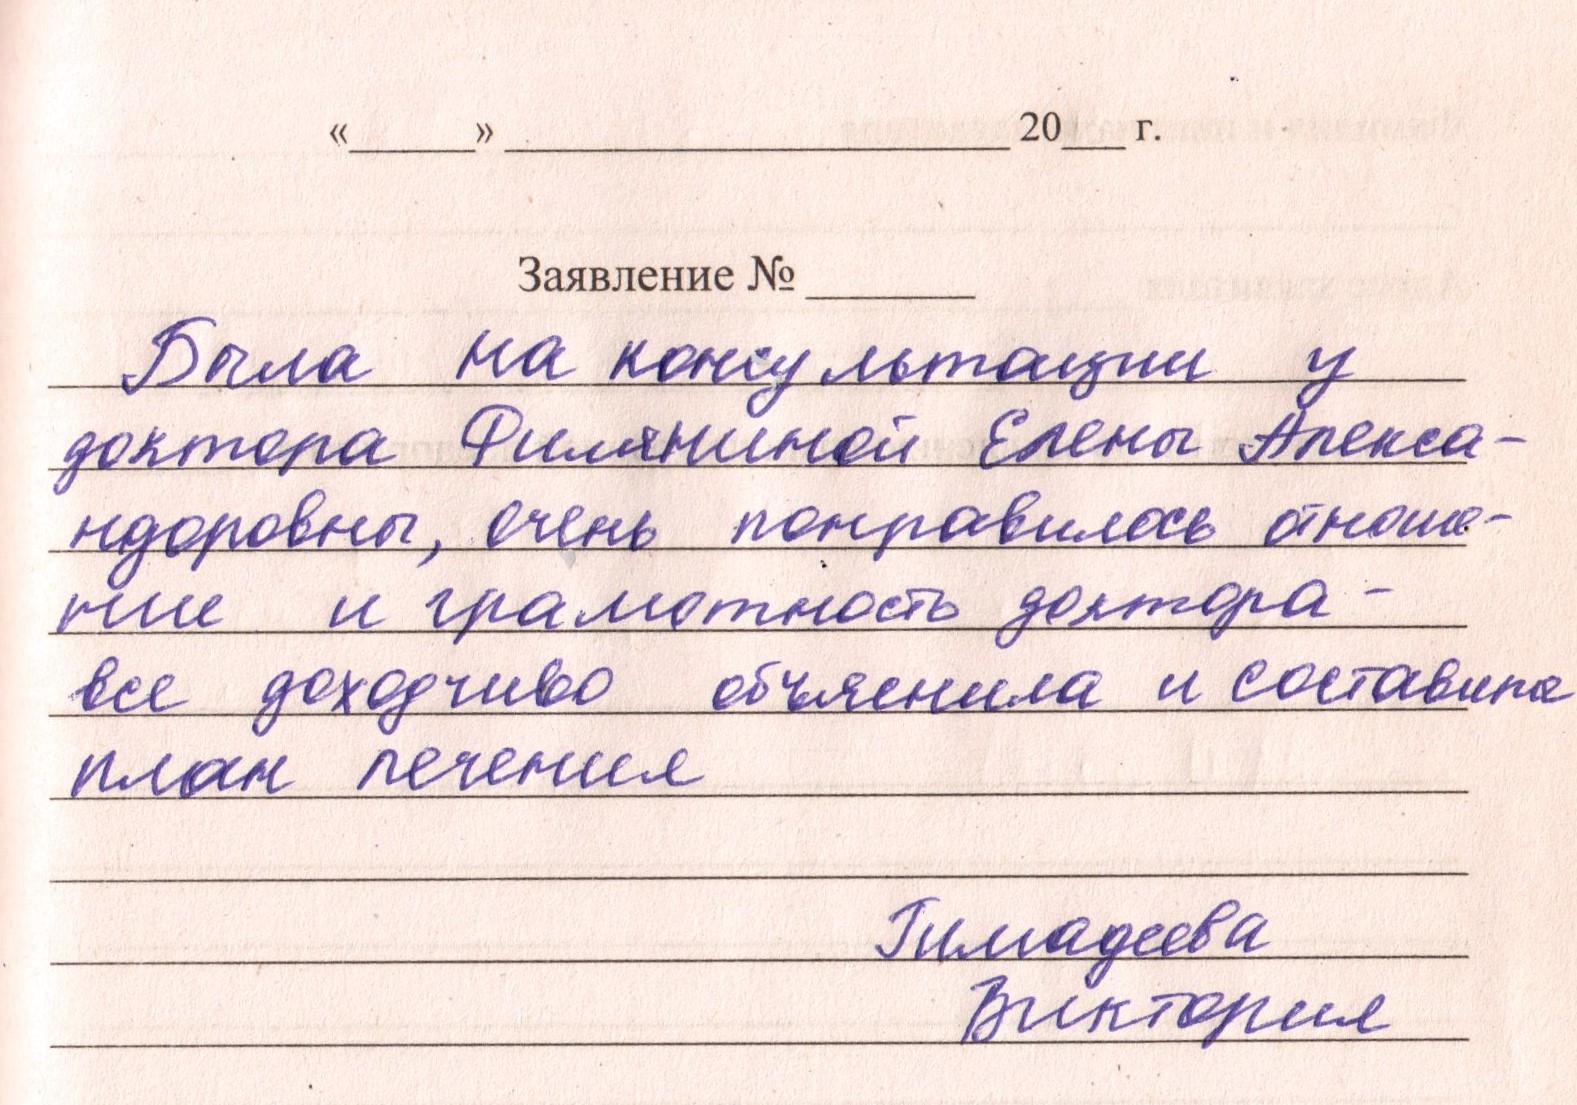 «______» ________________________ 20___ г.
Заявление № ________
Была на консультации у
доктора Филяниной Елены Алекса-
ндоровны, очень понравилось отноше-
ние и грамотность доктора -
все доходчиво объяснила и составила
план лечения
Гимадеева
Виктория